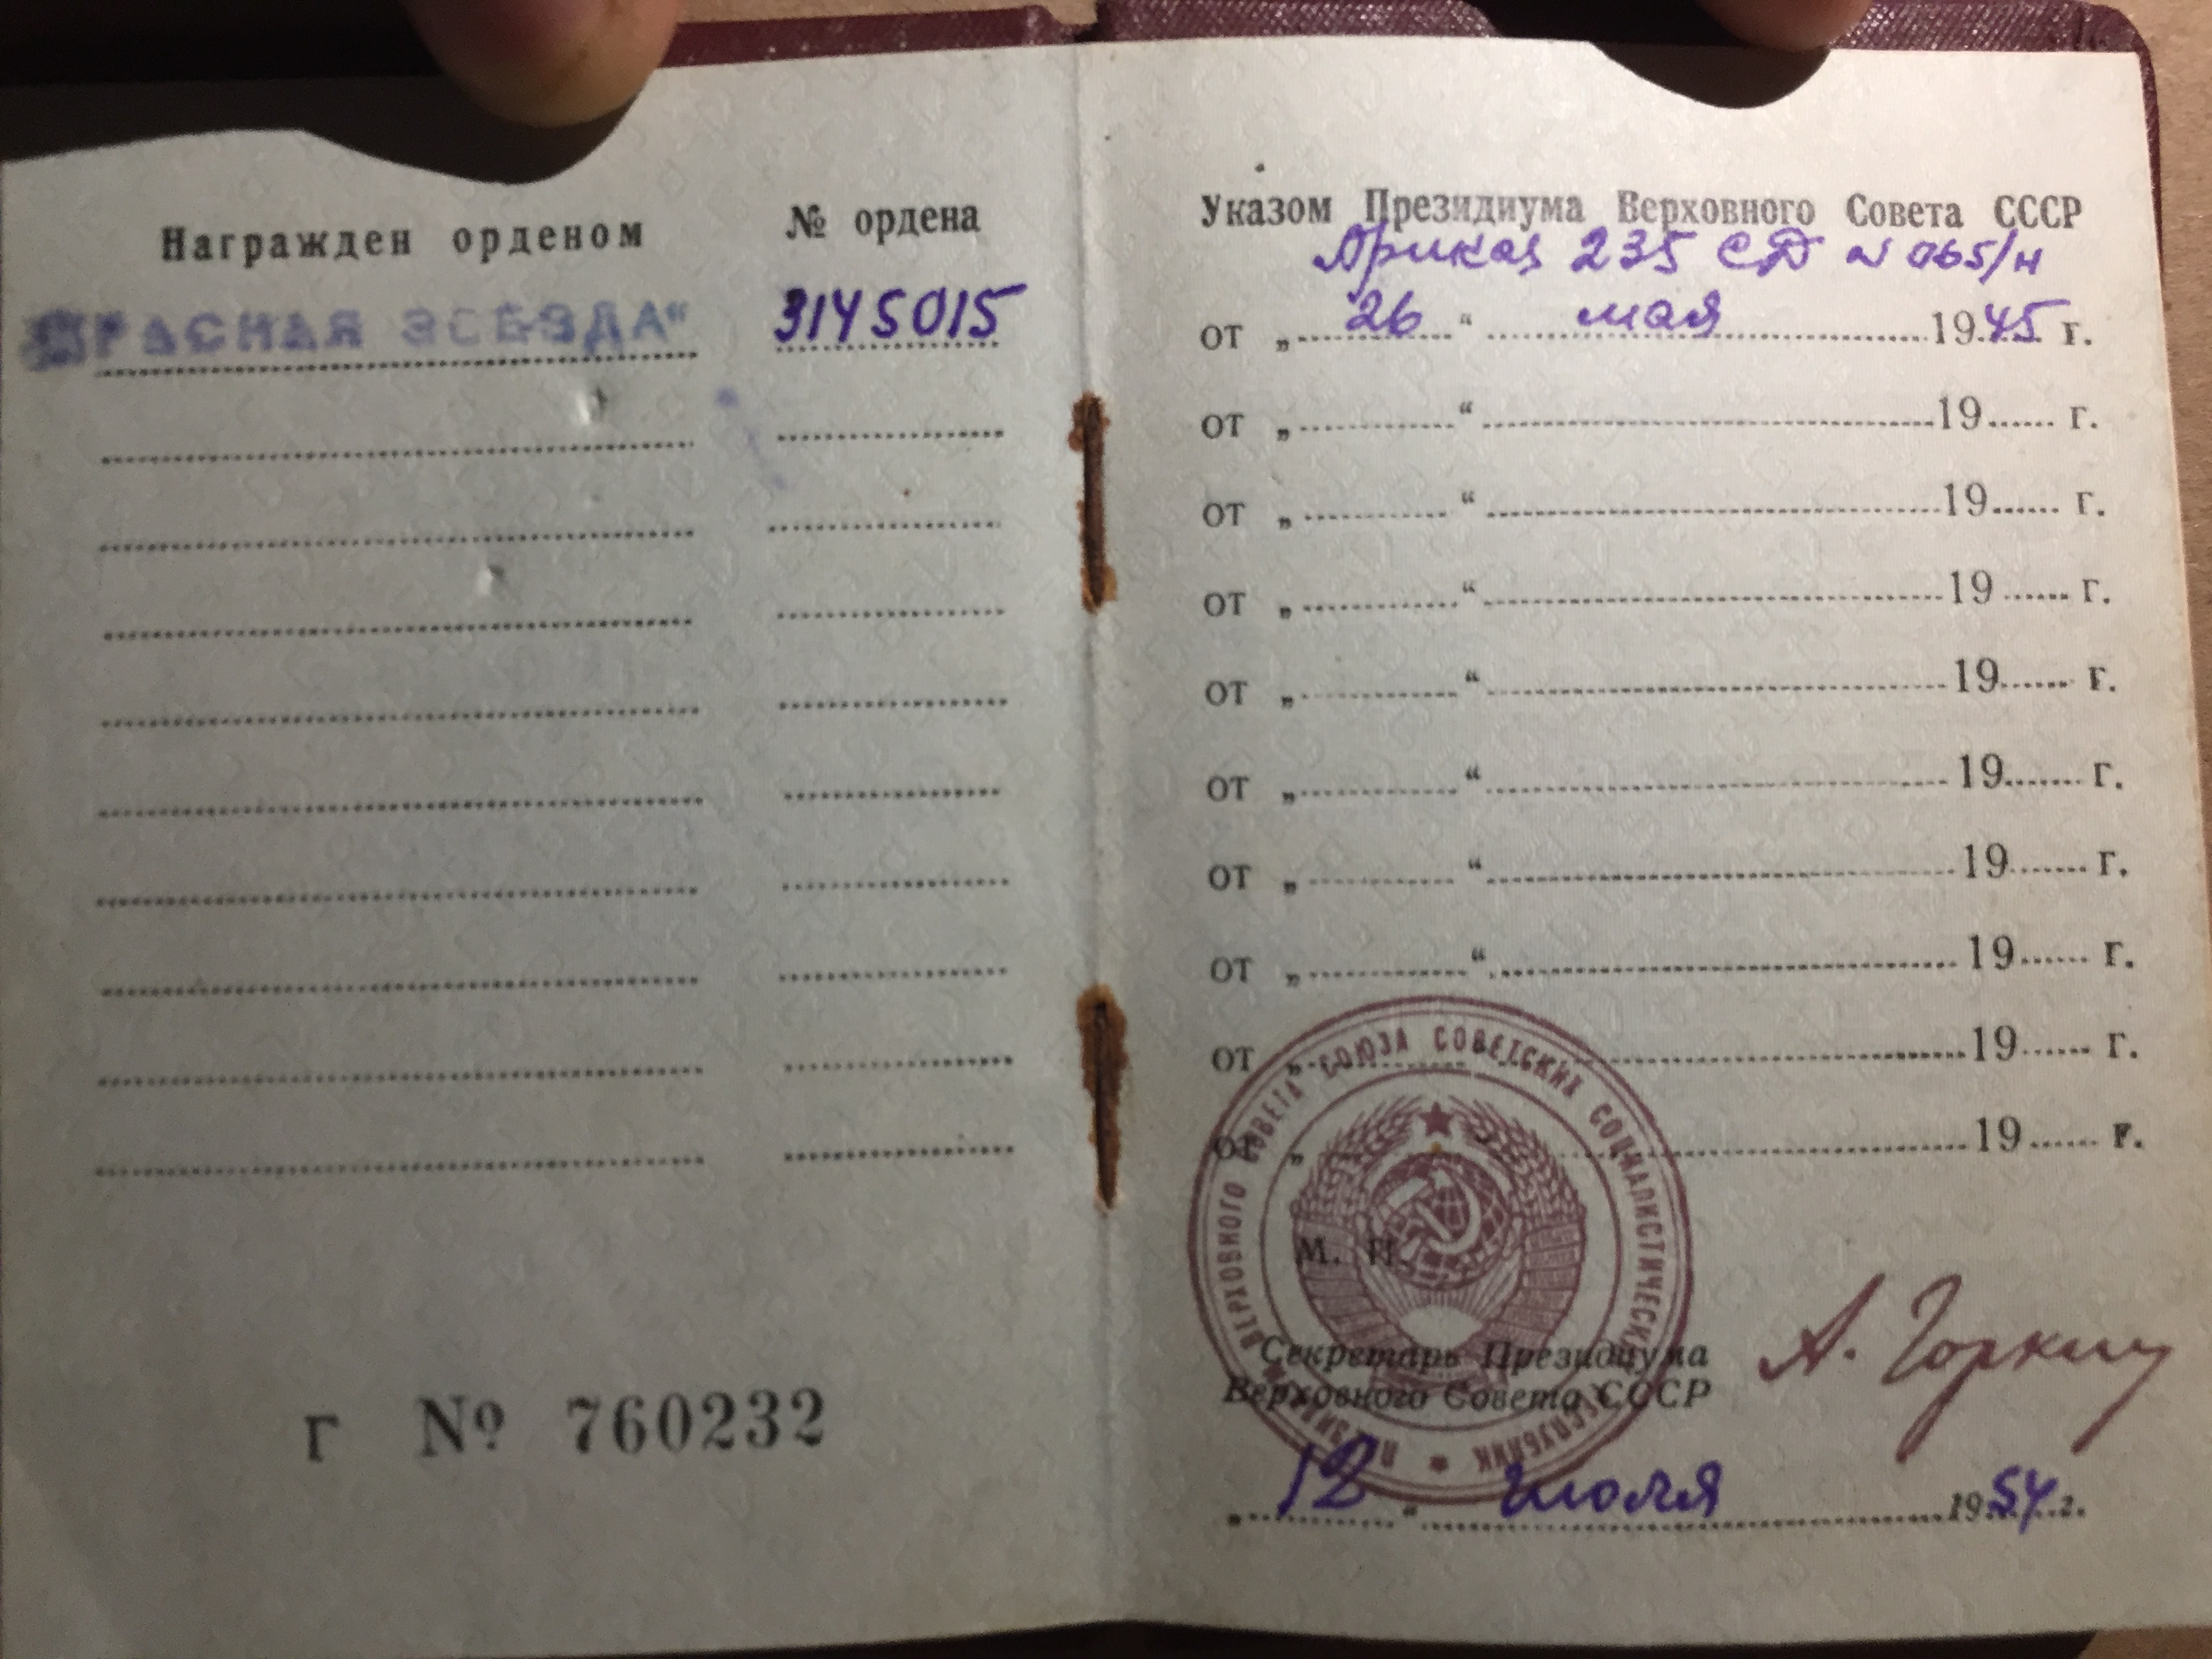 Награжден орденом
№ ордена
КРАСНАЯ ЗВЕЗДА“
3145015
Г № 760232
Указом Президиума Верховного Совета СССР
Приказ 235 СД № 065/н
от „ 26 “ мая 1945 г.
от „ “ 19 г.
от „ “ 19 г.
от „ “ 19 г.
от „ “ 19 г.
от „ “ 19 г.
от „ “ 19 г.
от „ “ 19 г.
от „ “ 19 г.
от „ 19 г.
ПРЕЗИДИУМ ВЕРХОВНОГО СОВЕТА СОЮЗА СОВЕТСКИХ СОЦИАЛИСТИЧЕСКИХ РЕСПУБЛИК
М. П.
Секретарь Президиума
Верховного Совета СССР
А. Горкин
„ 12 “ июля 1954 г.